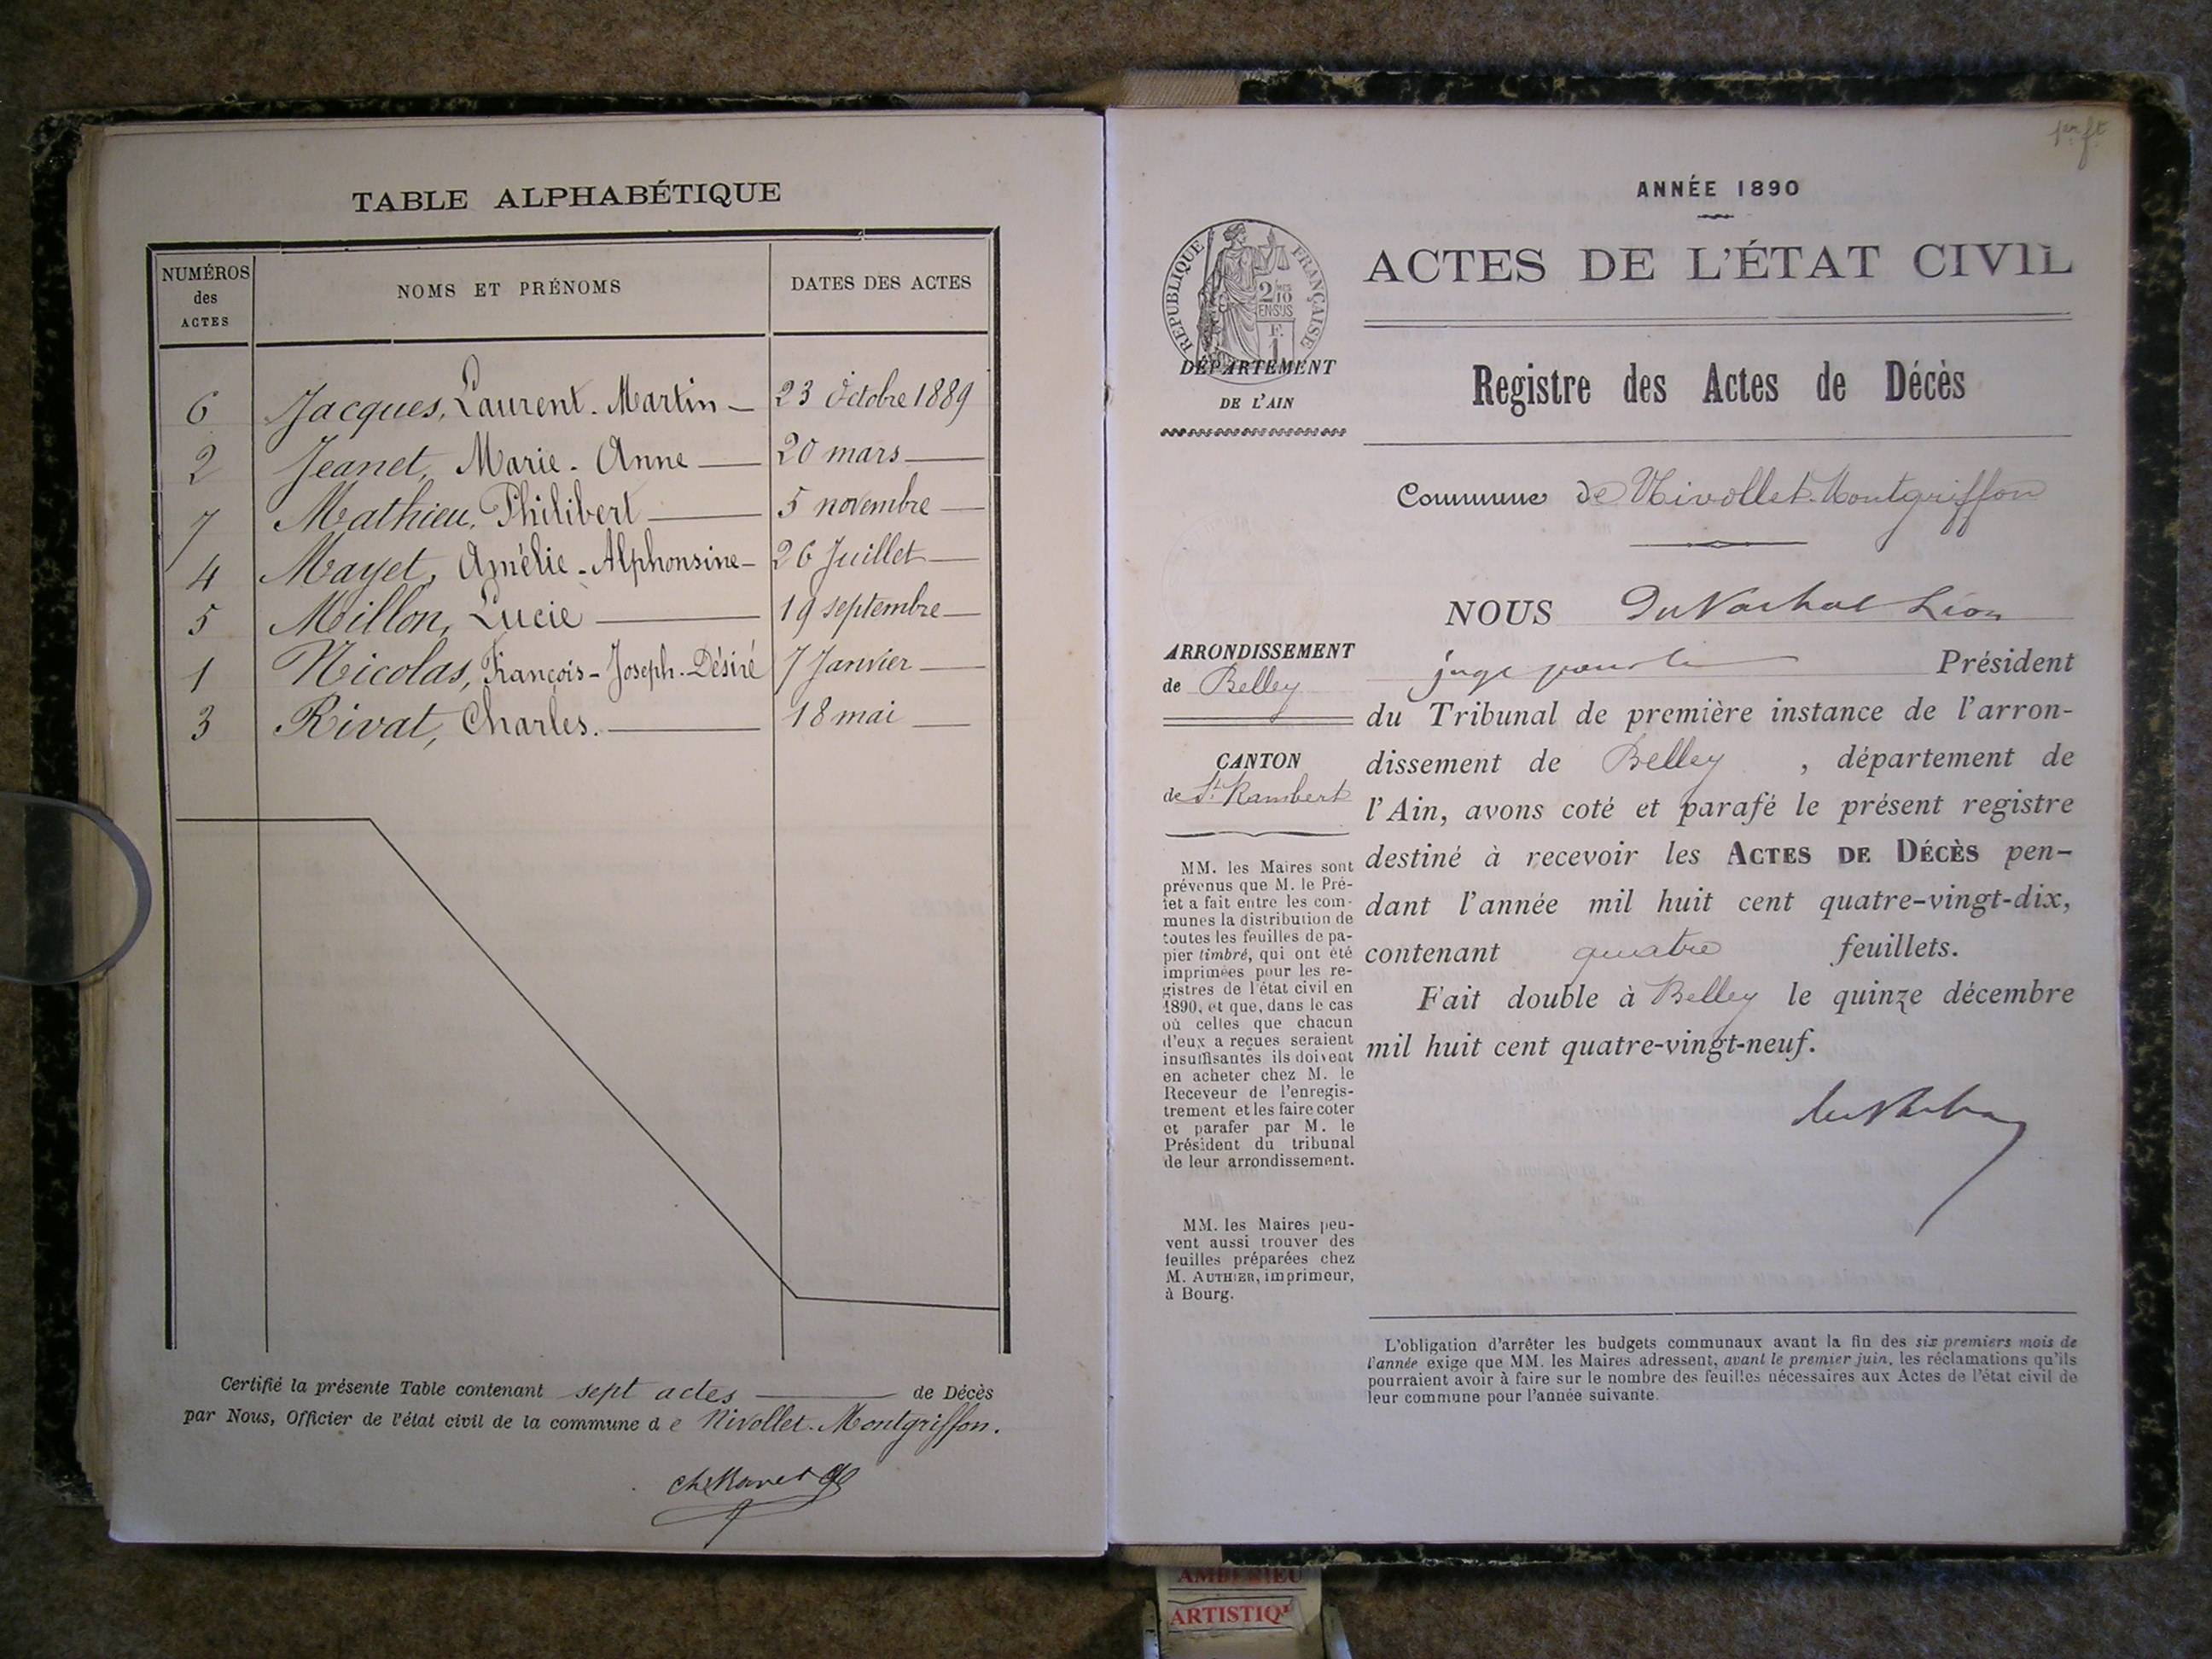 TABLE ALPHABÉTIQUE
NUMÉROS
des
ACTES
NOMS ET PRÉNOMS
DATES DES ACTES
6 Jacques, Laurent-Martin 23 Octobre 1889
2 Jeanet, Marie-Anne 20 mars
7 Mathieu, Philibert 5 novembre
4 Mayet, Amélie-Alphonsine 26 Juillet
5 Millon, Lucie 19 septembre
1 Nicolas, François-Joseph-Désiré 7 Janvier
3 Rivat, Charles. 18 mai
Certifié la présente Table contenant sept actes de Décès
par Nous, Officier de l'état civil de la commune de Nivollet-Montgriffon.
1er ft
ANNÉE 1890
ACTES DE L'ÉTAT CIVIL
RÉPUBLIQUE FRANÇAISE
2/10 EN SUS
F. 1
DÉPARTEMENT
DE L'AIN
Registre des Actes de Décès
Commune de Nivollet-Montgriffon
NOUS Du Léon
juge pour le Président
du Tribunal de première instance de l'arron-
dissement de Belley , département de
l'Ain, avons coté et parafé le présent registre
destiné à recevoir les ACTES DE DÉCÈS pen-
dant l'année mil huit cent quatre-vingt-dix,
contenant quatre feuillets.
Fait double à Belley le quinze décembre
mil huit cent quatre-vingt-neuf.
ARRONDISSEMENT
de Belley
CANTON
de St. Rambert
MM. les Maires sont
prévenus que M. le Pré-
fet a fait entre les com-
munes la distribution de
toutes les feuilles de pa-
pier timbré, qui ont été
imprimées pour les re-
gistres de l'état civil en
1890, et que, dans le cas
où celles que chacun
d'eux a reçues seraient
insuffisantes ils doivent
en acheter chez M. le
Receveur de l'enregis-
trement et les faire coter
et parafer par M. le
Président du tribunal
de leur arrondissement.
MM. les Maires peu-
vent aussi trouver des
feuilles préparées chez
M. AUTHIER, imprimeur,
à Bourg.
L'obligation d'arrêter les budgets communaux avant la fin des six premiers mois de
l'année exige que MM. les Maires adressent, avant le premier juin, les réclamations qu'ils
pourraient avoir à faire sur le nombre des feuilles nécessaires aux Actes de l'état civil de
leur commune pour l'année suivante.
AMBERIEU
ARTISTIQ